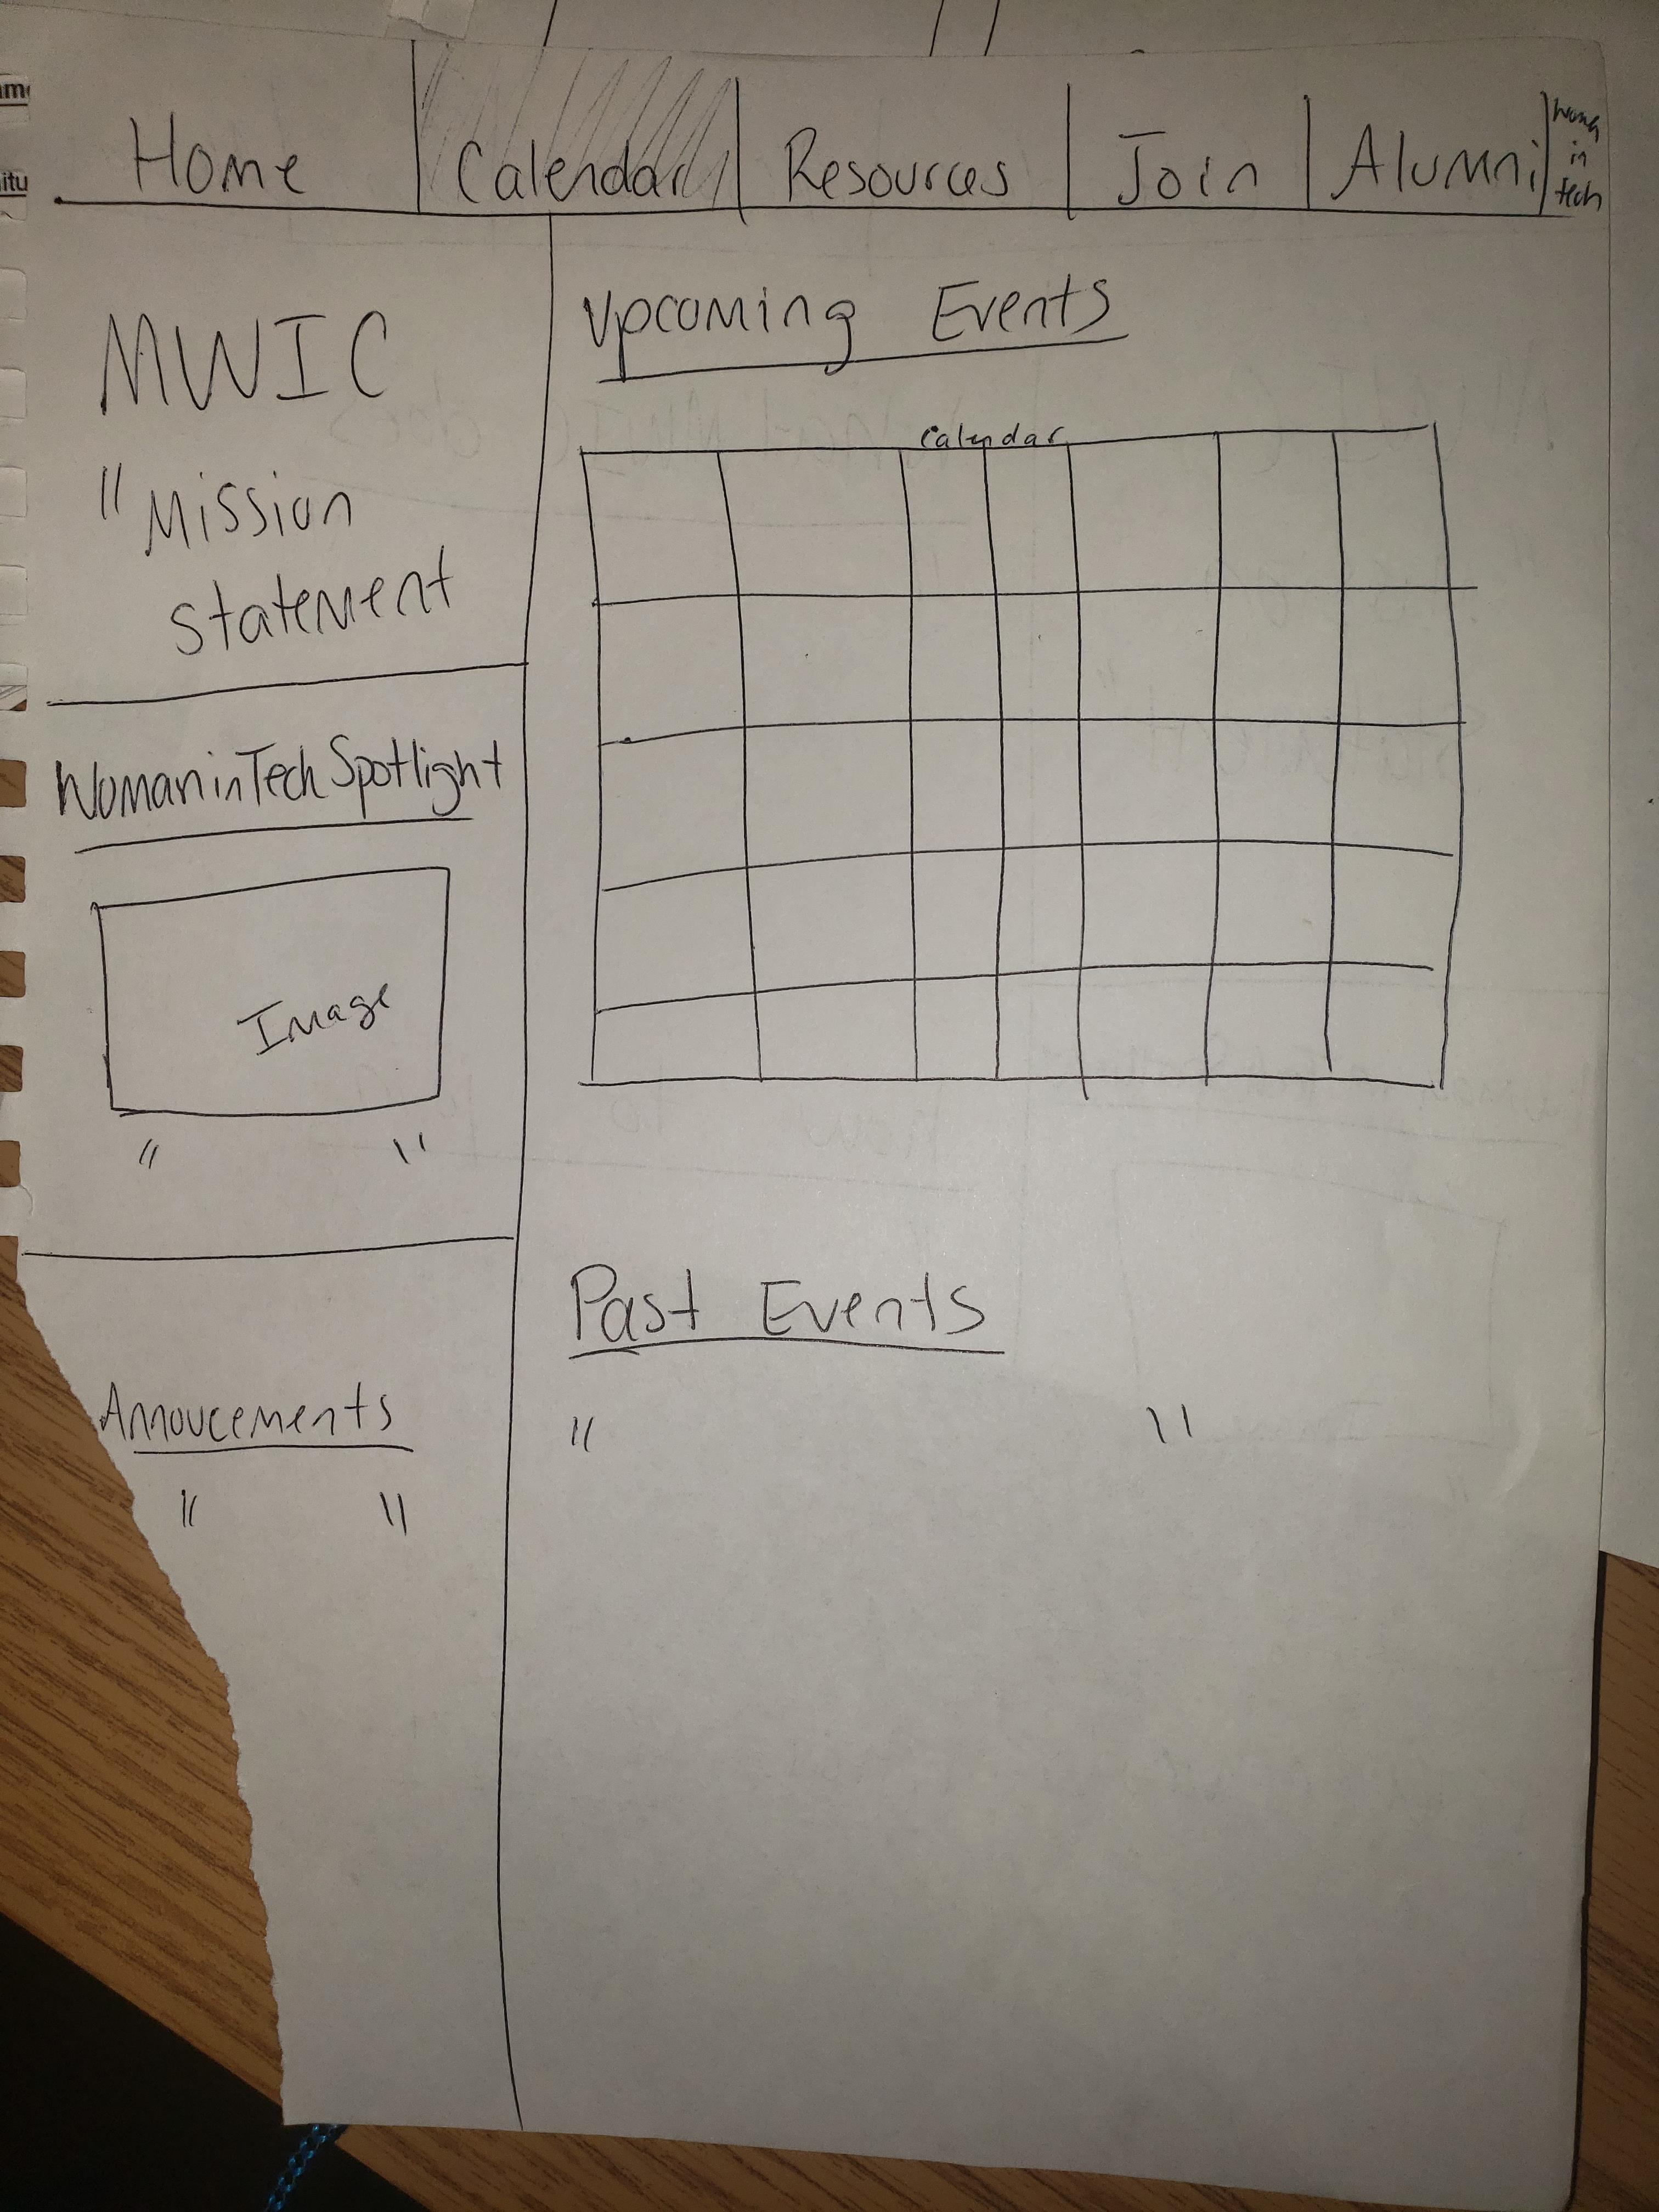 Home | Calendar | Resources | Join | Alumni | in tech
MWIC
" Mission
statement
Woman in Tech Spotlight
Image
" "
Annoucements
" "
Upcoming Events
Calendar
Past Events
" "